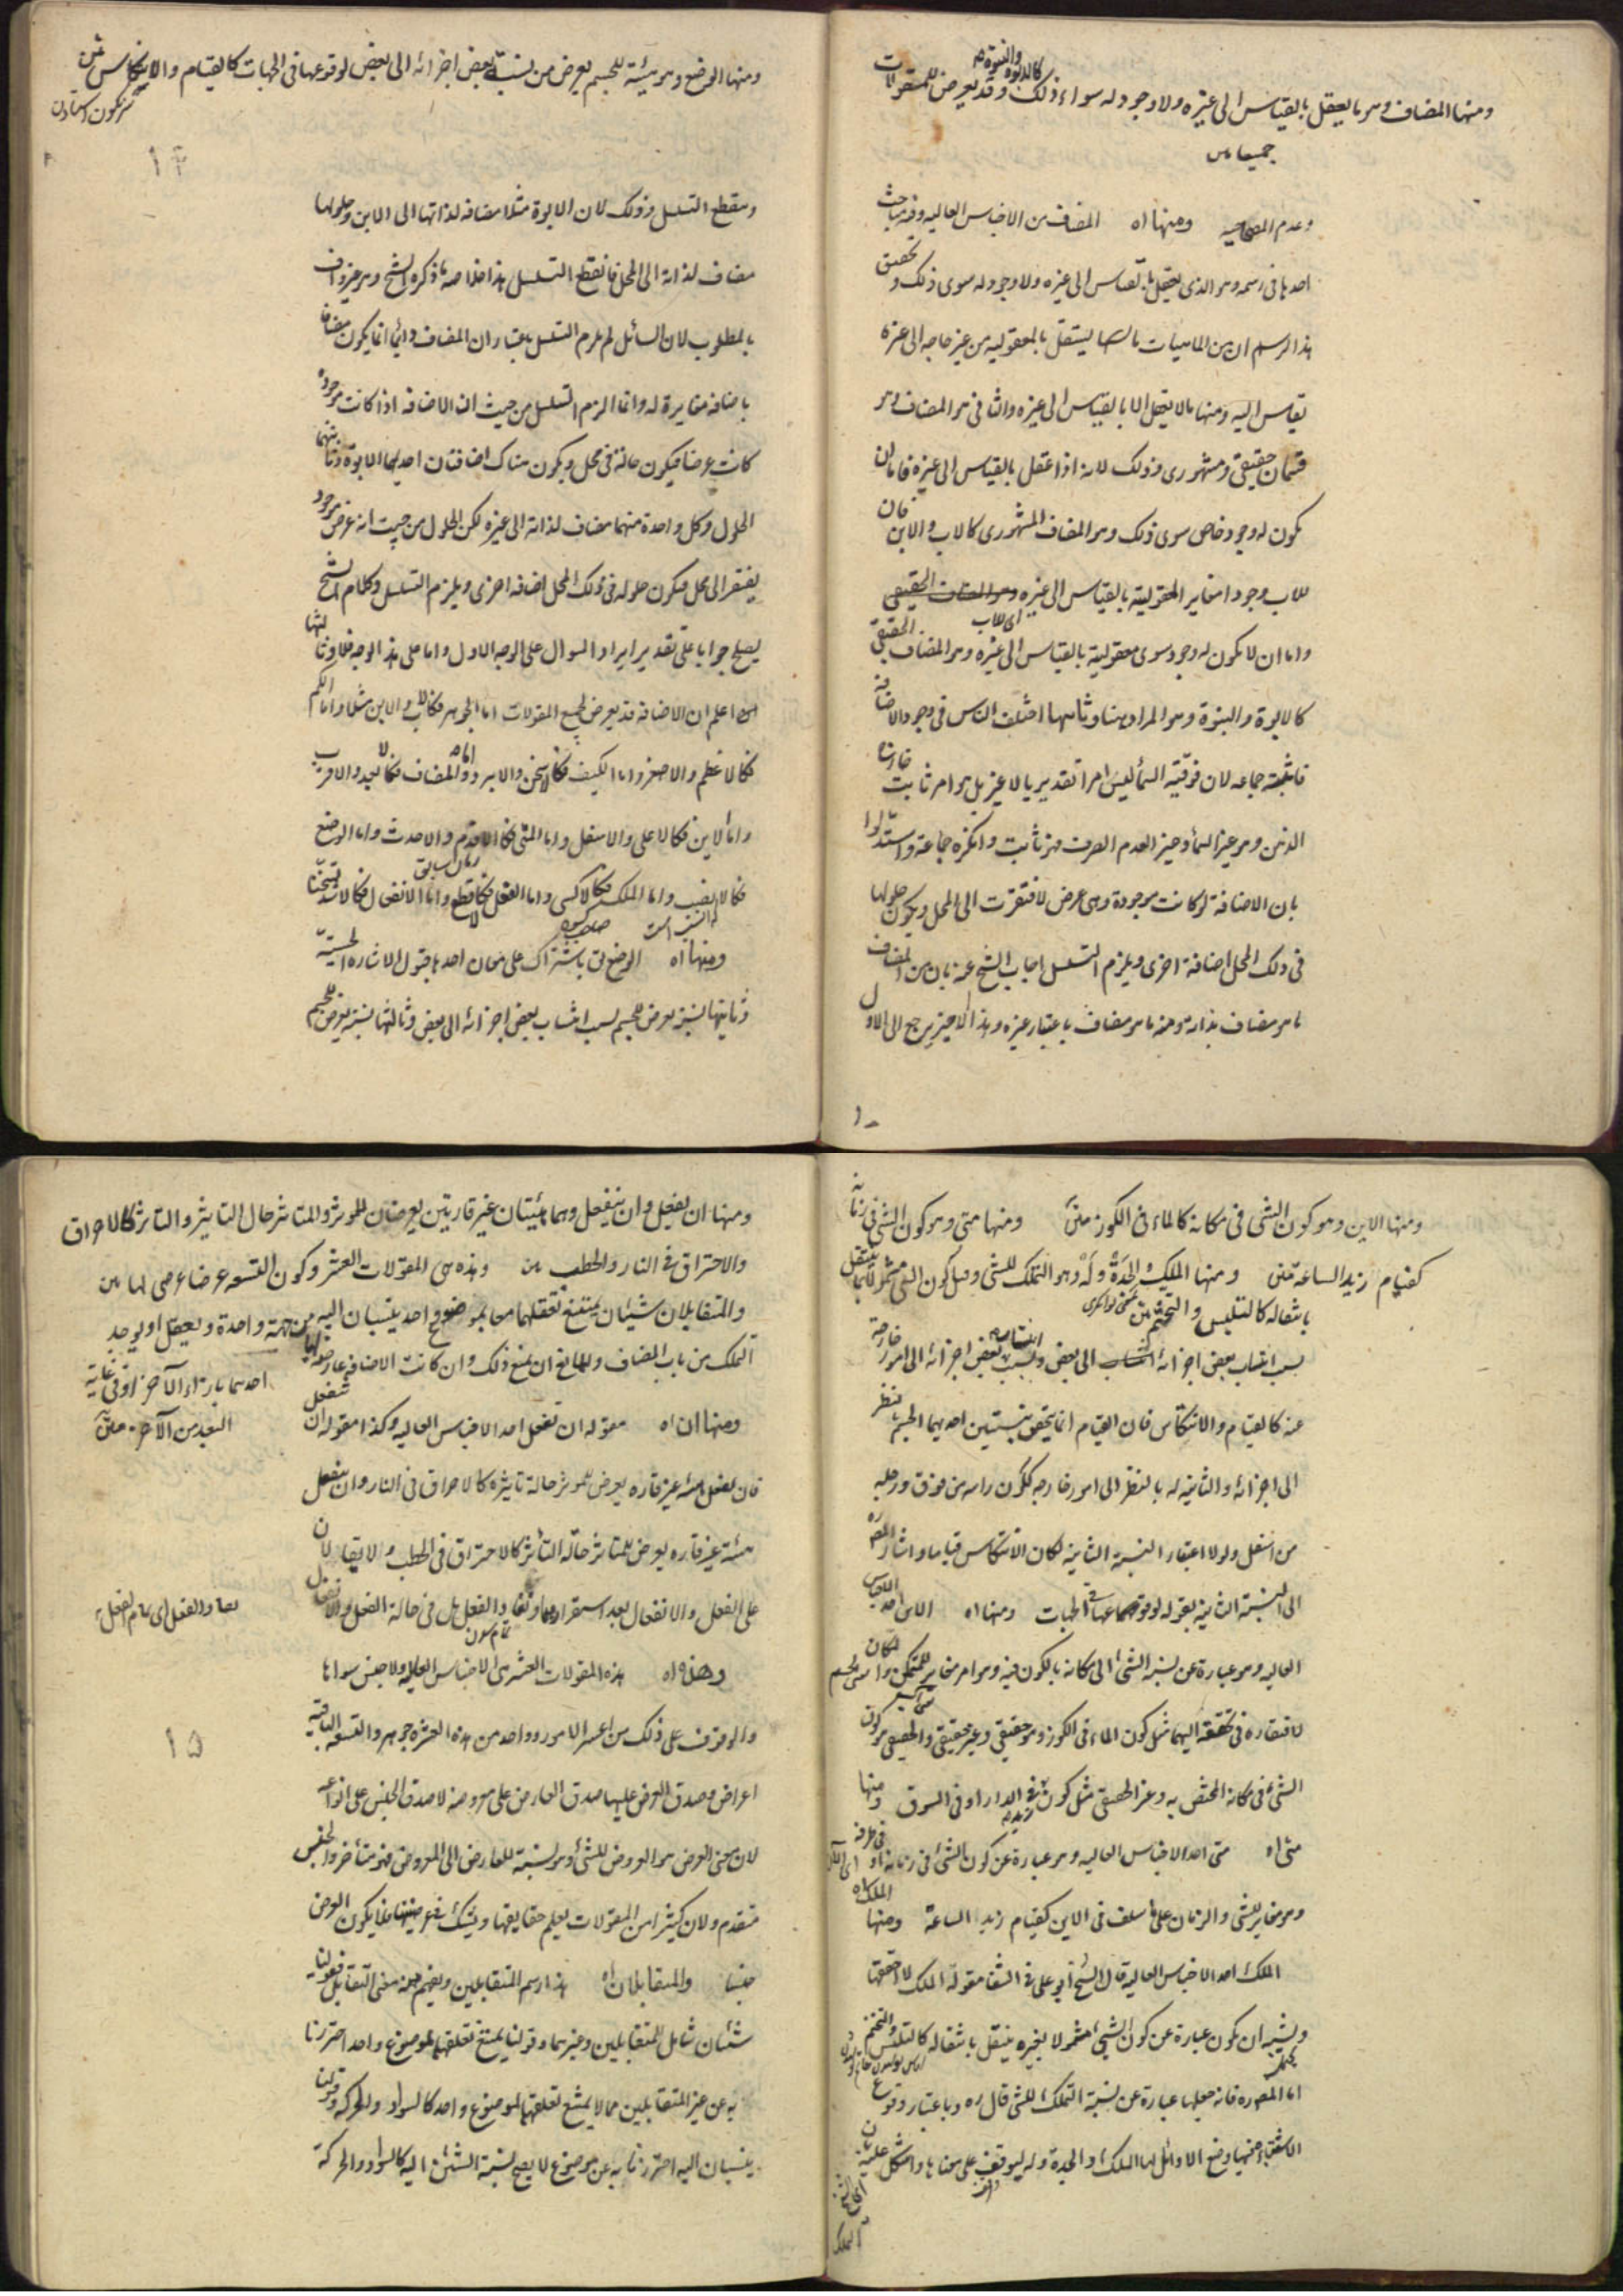 ومنها المضاف وهو ما يعقل بالقياس الى غيره ولا وجود له سواء ذلك كالابوة والبنوة وقد يعرض للمقولات
جميعا من
وعدم المصاحبه ومنها اه المضاف من الاجناس العاليه وفيه مباحث
احدها فى رسمه وهو الذى يعقل بالقياس الى غيره ولا وجود له سوى ذلك وتحقيق
هذا الرسم ان من الماهيات ما يستقل بالمعقوليه من غير حاجه الى غيره
يقاس اليه ومنها ما لا يعقل الا بالقياس الى غيره والثانى هو المضاف وهو
قسمان حقيقى ومشهورى وذلك لانه اذا عقل بالقياس الى غيره فاما ان
يكون له وجود خاص سوى ذلك وهو المضاف المشهورى كالاب والابن فان
للاب وجودا مغاير المعقولية بالقياس الى غيره وهو المضاف الحقيقى
اى للاب
واما ان لا يكون له وجود سوى معقولية بالقياس الى غيره وهو المضاف الحقيقى
كالابوة والبنوة وهو المراد هنا وثانيها اختلف الناس فى وجود الاضافة
فاثبته جماعه لان فوقية السماء ليس امرا تقديريا لا غير بل هو امر ثابت خارج
الذهن وهو غير السماء وحيز العدم الصرف فهو ثابت وانكره جماعة واستدلوا
بان الاضافة لو كانت موجودة وهى عرض لافتقرت الى المحل ويكون حلولها
فى ذلك المحل اضافة اخرى ويلزم التسلسل اجاب الشيخ عنه بان من المضاف
ما هو مضاف بذاته ومنه ما هو مضاف باعتبار غيره وهذا الاخير يرجع الى الاول
ومنها الوضع وهو هيئة للجسم يعرض من نسبة بعض اجزائه الى بعض لوقوعها فى الجهات كالقيام والانتكاس متن
١٤
وينقطع التسلسل وذلك لان الابوة مثلا مضافه لذاتها الى الابن وحلولها
مضاف لذاته الى المحل فانقطع التسلسل هذا خلاصه ما ذكره الشيخ وهو غير واف
بالمطلوب لان السائل لم يلزم التسلسل باعتبار ان المضاف دائما انما يكون مضافا
باضافه مغايرة له وانما الزم التسلسل من حيث ان الاضافه اذا كانت موجودة
كانت عرضا فيكون حالة فى محل ويكون هناك اضافتان احديهما الابوة وثانيتهما
الحلول وكل واحدة منهما مضاف لذاته الى غيره لكن الحلول من حيث انه عرض موجود
يفتقر الى محل فيكون حلوله فى ذلك المحل اضافه اخرى ويلزم التسلسل وكلام الشيخ
يصلح جوابا على تقدير ايراد السوال على الوجه الاول واما على هذا الوجه فلا وثالثها
اعلم ان الاضافه قد يعرض لجميع المقولات اما الجوهر فكالاب والابن مثلا واما الكم
فكالاعظم والاصغر واما الكيف فكالاسخن والابرد واما المضاف فكالابعد والاقرب
واما الاين فكالاعلى والاسفل واما المتى فكالاقدم والاحدث واما الوضع
فكالانصب واما الملك فكالاكسى واما الفعل فكالاقطع واما الانفعال فكالاشد تسخنا
ومنها اه الوضع يق باشتراك على معان احدها قبول الاشاره الحسيّة
وثانيتها نسبة يعرض للجسم بسبب انتساب بعض اجزائه الى بعض وثالثها نسبة يعرض للجسم
ومنها الاين وهو كون الشى فى مكانه كالماء فى الكوز متن ومنها متى وهو كون الشى فى زمانه
كقيام زيد الساعه متن ومنها الملك والجدة وله وهو التملك للشى وقيل كون الشى مشمولا بما ينتقل
بانتقاله كالتلبس والتختم متن
بسبب انتساب بعض اجزائه الى بعض وبسبب انتساب بعض اجزائه الى امور خارجة
عنه كالقيام والانتكاس فان القيام انما يتحقق بنسبتين احديهما للجسم بنظر
الى اجزائه والثانيه له بالنظر الى امور خارجه ككون راسه من فوق ورجليه
من اسفل ولولا اعتبار النسبة الثانية لكان الانتكاس قياما واشار المصره
الى النسبة الثانية بقوله لوقوعها فى الجهات ومنها اه الاين احد الاجناس
العاليه وهو عبارة عن نسبه الشئ الى مكانه بالكون فيه وهو امر مغاير للمتمكن والمكان
لافتقاره فى تحققه اليهما مثل كون الماء فى الكوز وهو حقيقى وغير حقيقى والحقيقى هو كون
الشئ فى مكانه المختص به وغير الحقيقى مثل كون زيد فى الدار او فى السوق ومنها
متى اه متى احد الاجناس العاليه وهو عبارة عن كون الشئ فى زمانه او فى طرفه
وهو مغاير للشى والزمان على ما سلف فى الاين كقيام زيد الساعة ومنها الملك اه
الملك احد الاجناس العالية قال الشيخ ابو على فى الشفا مقولة الملك لا احققها
ويشبه ان يكون عبارة عن كون الشئ مشمولا بغيره ينتقل بانتقاله كالتلبس والتختم
اما المصره فانه جعلها عبارة عن نسبة التملك للشى قال ره وباعتبار وقوع
الاشتباه فيها وضع الاوائل لها الملك والجدة وله ليوقف على معناها
الملك
ومنها ان يفعل وان ينفعل وهما هيئتان غير قارتين يعرضان للموثر والمتاثر حال التاثير والتاثر كالاحراق
والاحتراق فى النار والحطب من وهذه هى المقولات العشر وكون التسعه عرضا عرضى لها من
والمتقابلان شيئان يمتنع تعقلهما معا بموضوع واحد ينسبان اليه من جهة واحدة ويعقل او يوجد
احدهما بازاء الآخر او فى غاية
البعد من الآخر متن
التملك من باب المضاف وللمانع ان يمنع ذلك وان كانت الاضافه عارضه لها
ومنها ان اه مقوله ان يفعل احد الاجناس العاليه وكذا مقوله ان ينفعل
فان يفعل هيئه غير قاره يعرض للموثر حالة تاثيره كالاحراق فى النار وان ينفعل
هيئة غير قاره يعرض للمتاثر حالة التأثر كالاحتراق فى الحطب ولا يقالان
على الفعل والانفعال بعد استقرارهما وتقاد والفعل بل فى حالة الفعل والانفعال
وهذه اه هذه المقولات العشر هى الاجناس العاليه ولا جنس سواها
١٥
والوقوف على ذلك من اعسر الامور وواحد من هذه العشرة جوهر والتسعه الباقية
اعراض وصدق العرض عليها صدق العارض على معروضه لا صدق الجنس على انواعه
لان معنى العرض هو العروض للشئ وهو نسبة للعارض الى المعروض فهو متأخر والجنس
متقدم ولان كثيرا من المقولات يعلم حقايقها ويشك فى عرضيتها فلا يكون العرض
جنسا والمتقابلان اه هذا رسم المتقابلين ويفهم منه معنى التقابل فقولنا
شيئان شامل للمتقابلين وغيرهما وقولنا يمتنع تعلقهما بموضوع واحد احترزنا
به عن غير المتقابلين مما لا يمتنع تعلقهما بموضوع واحد كالسواد والحركه وقولنا
ينسبان اليه احترزنا به عن موضوع لا يصح نسبة الشيئين اليه كالسواد والحركة